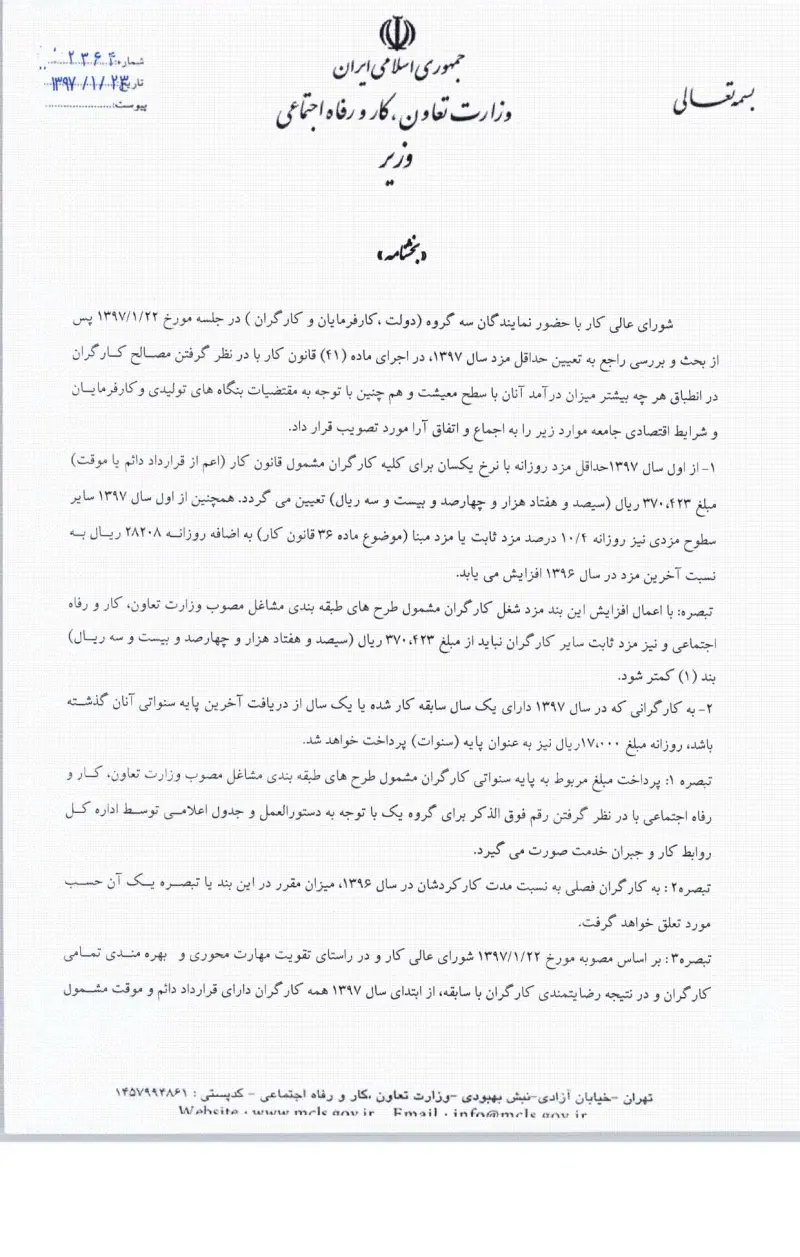 بسمه تعالی
جمهوری اسلامی ایران
وزارت تعاون، کار و رفاه اجتماعی
وزیر
شماره: ۲۳۶۴
تاریخ: ۱۳۹۷/۱/۲۳
پیوست:
«بخشنامه»
شورای عالی کار با حضور نمایندگان سه گروه (دولت ،کارفرمایان و کارگران ) در جلسه مورخ ۱۳۹۷/۱/۲۲ پس
از بحث و بررسی راجع به تعیین حداقل مزد سال ۱۳۹۷، در اجرای ماده (۴۱) قانون کار با در نظر گرفتن مصالح کـارگران
در انطباق هر چه بیشتر میزان درآمد آنان با سطح معیشت و هم چنین با توجه به مقتضیات بنگاه های تولیدی وکارفرمایـان
و شرایط اقتصادی جامعه موارد زیر را به اجماع و اتفاق آرا مورد تصویب قرار داد.
۱- از اول سال ۱۳۹۷حداقل مزد روزانه با نرخ یکسان برای کلیه کارگران مشمول قانون کار (اعم از قرارداد دائم یا موقت)
مبلغ ۳۷۰،۴۲۳ ریال (سیصد و هفتاد هزار و چهارصد و بیست و سه ریال) تعیین می گردد. همچنین از اول سال ۱۳۹۷ سایر
سطوح مزدی نیز روزانه ۱۰/۴ درصد مزد ثابت یا مزد مبنا (موضوع ماده ۳۶ قانون کار) به اضافه روزانـه ۲۸۲۰۸ ریـال بـه
نسبت آخرین مزد در سال ۱۳۹۶ افزایش می یابد.
تبصره: با اعمال افزایش این بند مزد شغل کارگران مشمول طرح های طبقه بندی مشاغل مصوب وزارت تعاون، کار و رفاه
اجتماعی و نیز مزد ثابت سایر کارگران نباید از مبلغ ۳۷۰،۴۲۳ ریال (سیصد و هفتاد هزار و چهارصد و بیست و سه ریـال)
بند (۱) کمتر شود.
۲- به کارگرانی که در سال ۱۳۹۷ دارای یک سال سابقه کار شده یا یک سال از دریافت آخرین پایه سنواتی آنان گذشـته
باشد، روزانه مبلغ ۱۷،۰۰۰ریال نیز به عنوان پایه (سنوات) پرداخت خواهد شد.
تبصره ۱: پرداخت مبلغ مربوط به پایه سنواتی کارگران مشمول طرح های طبقه بندی مشاغل مصوب وزارت تعاون، کـار و
رفاه اجتماعی با در نظر گرفتن رقم فوق الذکر برای گروه یک با توجه به دستورالعمل و جدول اعلامـی توسـط اداره کـل
روابط کار و جبران خدمت صورت می گیرد.
تبصره۲ : به کارگران فصلی به نسبت مدت کارکردشان در سال ۱۳۹۶، میزان مقرر در این بند یا تبصـره یـک آن حسـب
مورد تعلق خواهد گرفت.
تبصره۳ : بر اساس مصوبه مورخ ۱۳۹۷/۱/۲۲ شورای عالی کار و در راستای تقویت مهارت محوری و بهره منـدی تمـامی
کارگران و در نتیجه رضایتمندی کارگران با سابقه، از ابتدای سال ۱۳۹۷ همه کارگران دارای قرارداد دائم و موقت مشـمول
تهران -خیابان آزادی-نبش بهبودی -وزارت تعاون ،کار و رفاه اجتماعی - کدپستی : ۱۴۵۷۹۹۴۸۶۱
Website : www.mcls.gov.ir Email : info@mcls.gov.ir